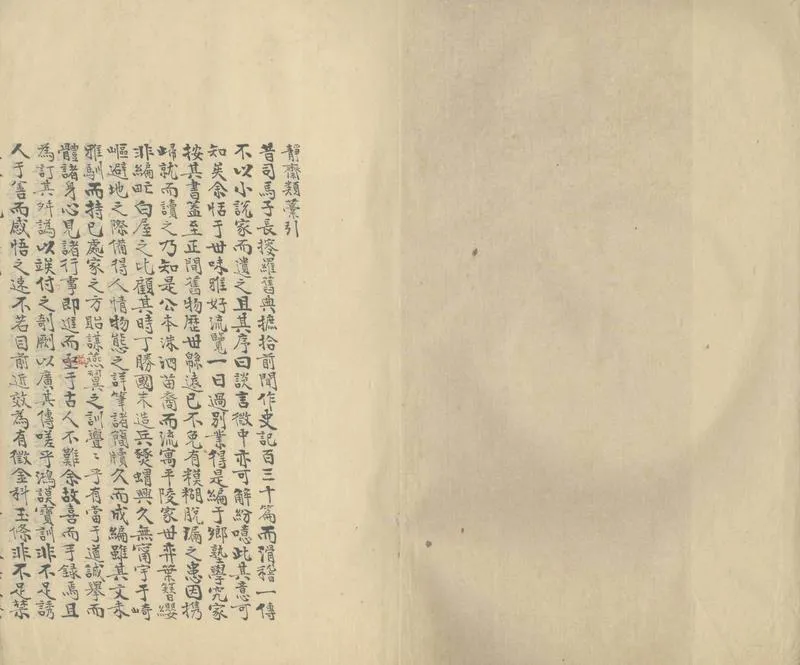 靜齋類藁引
昔司馬子長搜羅舊典摭拾前聞作史記百三十篇而滑稽一傳
不以小說家而遺之且其序曰談言微中亦可解紛噫此其意可
知矣余恬于世味雅好流覽一日過別業得是編于鄉塾學究家
按其書蓋至正間舊物歷世緜遠已不免有模糊脫漏之患因携
歸就而讀之乃知是公本洙泗苗裔而流寓平陵家世弈葉簪纓
非編氓白屋之比顧其時丁勝國末造兵燹蝟興久無甯宇于崎
嶇避地之際備得人情物態之詳筆諸簡牘久而成編雖其文未
雅馴而持已處家之方貽謀燕翼之訓亹〻乎有當于道誠舉而
體諸身心見諸行事即進而至于古人不難余故喜而手錄焉且
為訂其舛譌以竢付之剞劂以廣其傳嗟乎鴻謨寶訓非不足誘
人于善而感悟之速不若目前近效為有徵金科玉條非不足禁